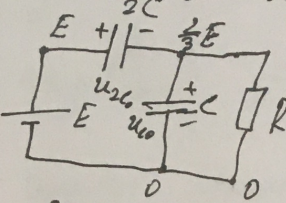 2C
E + - 2/3 E
u2c₀
E uc₀ + - C R
0 0